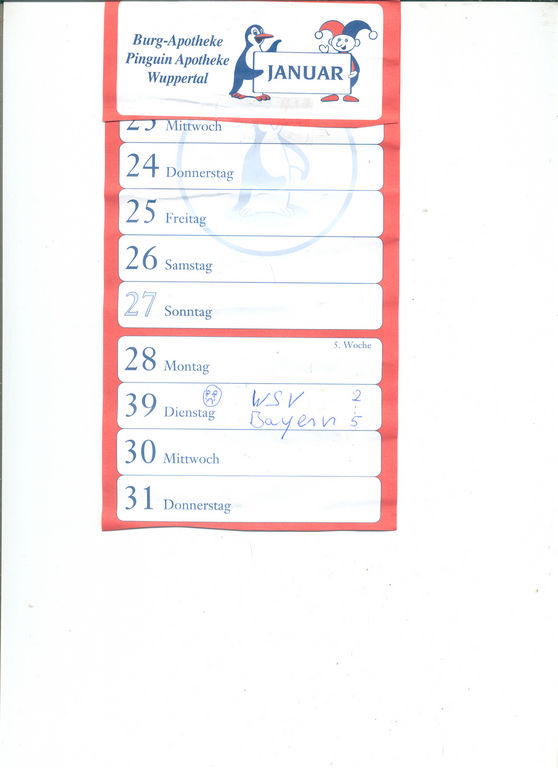 Burg-Apotheke
Pinguin Apotheke
Wuppertal
JANUAR
23 Mittwoch
24 Donnerstag
25 Freitag
26 Samstag
27 Sonntag
5. Woche
28 Montag
39 Dienstag WSV 2
: 
Bayern 5
30 Mittwoch
31 Donnerstag